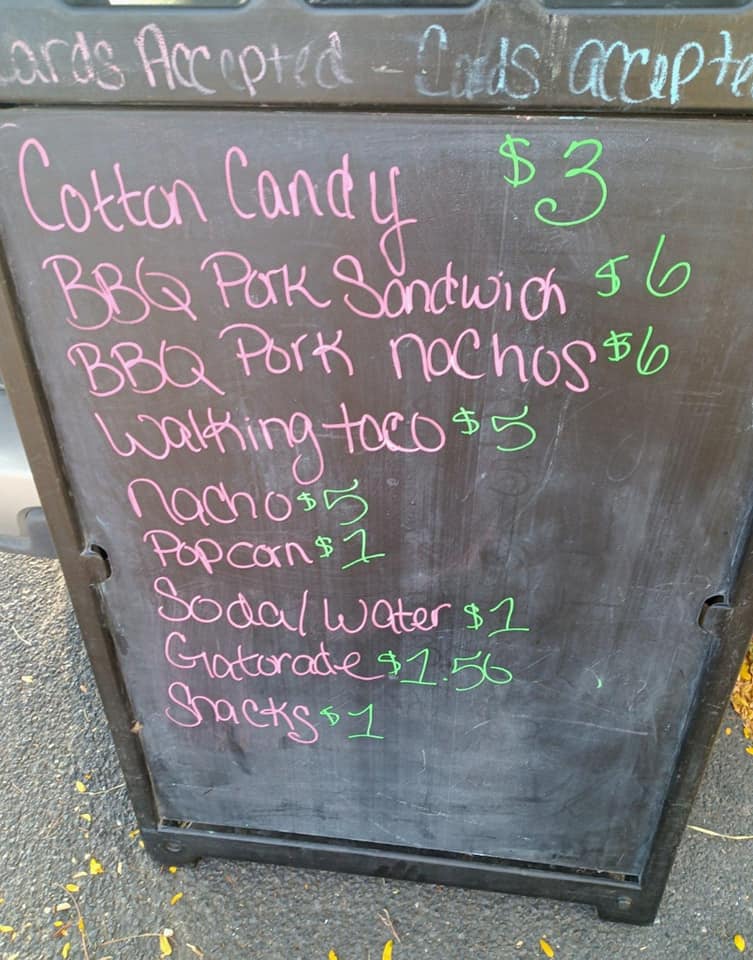 Cards Accepted - Cards accepted
Cotton Candy $3
BBQ Pork Sandwich $6
BBQ Pork nachos $6
Walking taco $5
nacho $5
Popcorn $1
Soda/Water $1
Gatorade $1.50
Snacks $1